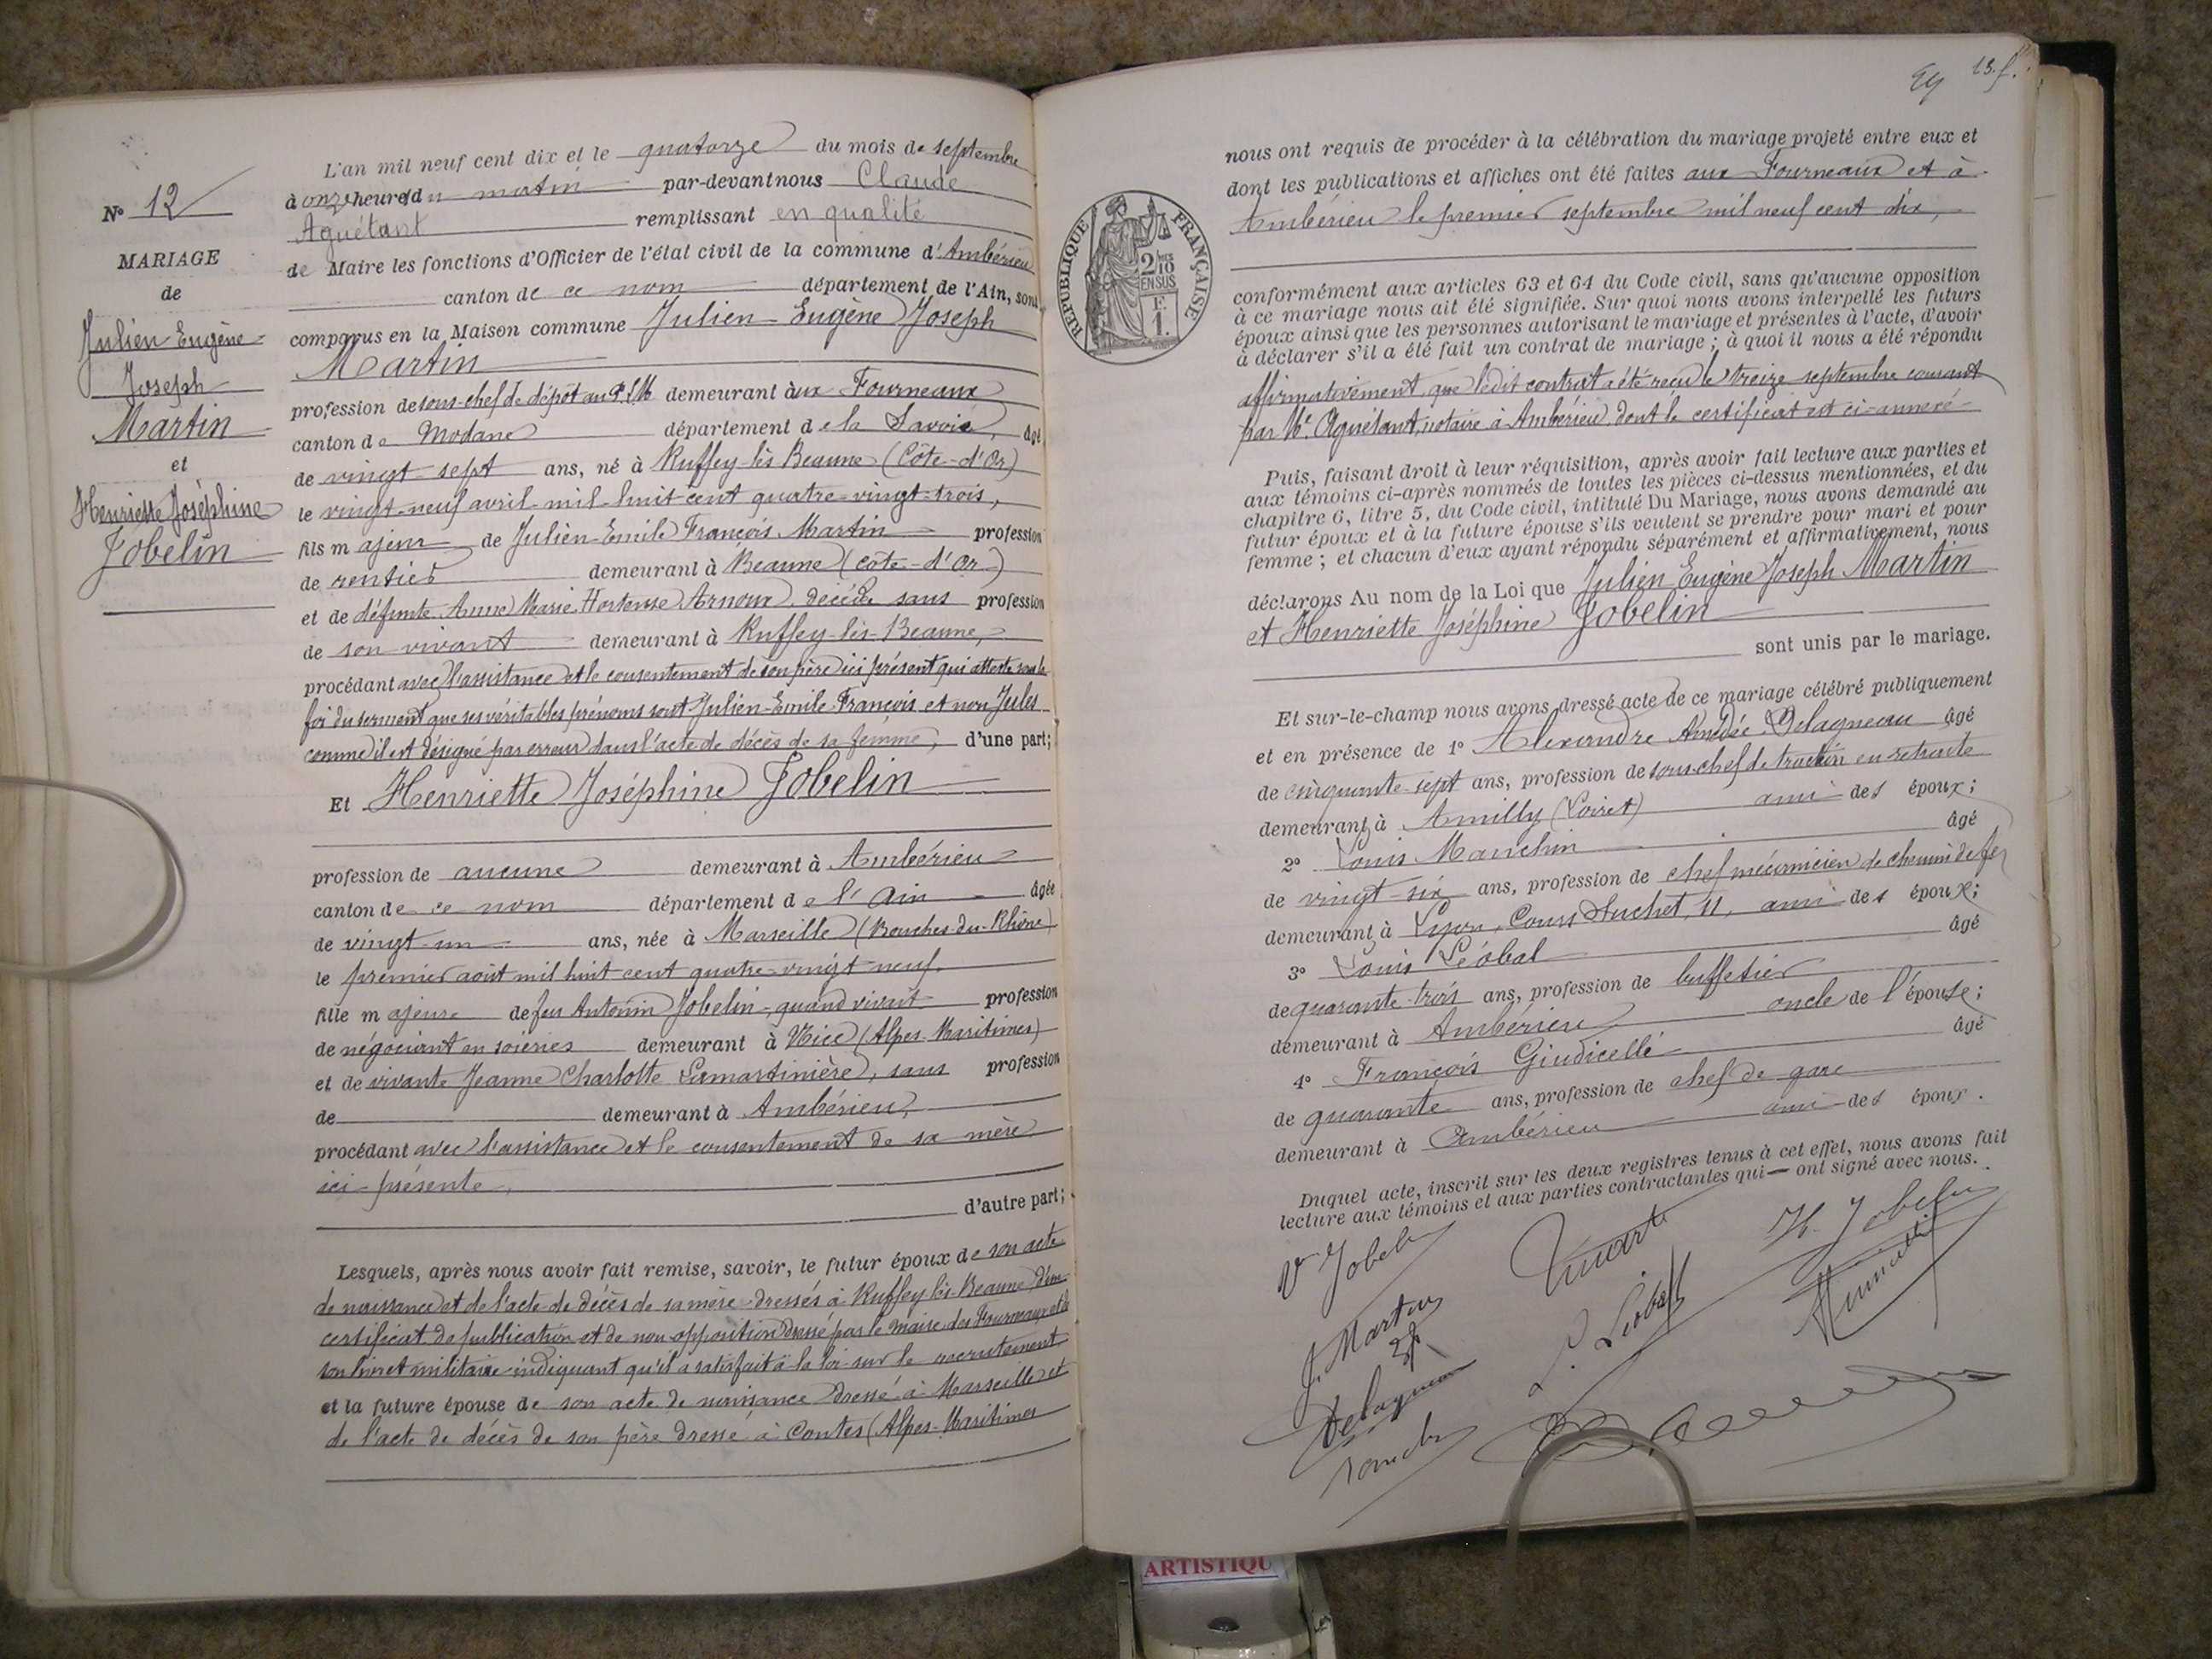 N° 12
MARIAGE
de
Julien Eugène
Joseph
Martin
et
Henriette Joséphine
Jobelin
L'an mil neuf cent dix et le quatorze du mois de septembre
à onze heures du matin par-devant nous Claude
Aguétant remplissant en qualité
de Maire les fonctions d'Officier de l'état civil de la commune d'Ambérieu
canton de ce nom département de l'Ain, sont
comparus en la Maison commune Julien Eugène Joseph
Martin
profession de sous-chef de dépôt au P.L.M. demeurant aux Fourneaux
canton de Modane département de la Savoie, âgé
de vingt-sept ans, né à Ruffey-lès-Beaune (Côte-d'Or)
le vingt-neuf avril mil huit cent quatre-vingt-trois,
fils majeur de Julien-Emile François Martin profession
de rentier demeurant à Beaune (Côte-d'Or)
et de défunte Anne Marie Hortense Arnoux, décédée sans profession
de son vivant demeurant à Ruffey-lès-Beaune,
procédant avec l'assistance et le consentement de son père ici présent qui atteste sous la
foi du serment que ses véritables prénoms sont Julien-Emile-François et non Jules
comme il est désigné par erreur dans l'acte de décès de sa femme, d'une part;
Et Henriette Joséphine Jobelin
profession de aucune demeurant à Ambérieu
canton de ce nom département de l'Ain âgée
de vingt-un ans, née à Marseille (Bouches-du-Rhône)
le premier août mil huit cent quatre-vingt neuf
fille majeure de feu Antonin Jobelin, quand vivait profession
de négociant en soieries demeurant à Nice (Alpes-Maritimes)
et de vivante Jeanne Charlotte Lamartinière, sans profession
de demeurant à Ambérieu,
procédant avec l'assistance et le consentement de sa mère
ici présente,
d'autre part;
Lesquels, après nous avoir fait remise, savoir, le futur époux de son acte
de naissance et de l'acte de décès de sa mère dressés à Ruffey-lès-Beaune d'un
certificat de publication et de non opposition dressé par le maire des Fourneaux et de
son livret militaire indiquant qu'il a satisfait à la loi sur le recrutement
et la future épouse de son acte de naissance dressé à Marseille et
de l'acte de décès de son père dressé à Contes (Alpes-Maritimes
13. f.
nous ont requis de procéder à la célébration du mariage projeté entre eux et
dont les publications et affiches ont été faites aux Fourneaux et à
Ambérieu le premier septembre mil neuf cent dix,
RÉPUBLIQUE FRANÇAISE
2/10
EN SUS
F.
1.
conformément aux articles 63 et 64 du Code civil, sans qu'aucune opposition
à ce mariage nous ait été signifiée. Sur quoi nous avons interpellé les futurs
époux ainsi que les personnes autorisant le mariage et présentes à l'acte, d'avoir
à déclarer s'il a été fait un contrat de mariage; à quoi il nous a été répondu
affirmativement, que ledit contrat a été reçu le treize septembre courant
par Me. Aguétant, notaire à Ambérieu, dont le certificat est ci-annexé
Puis, faisant droit à leur réquisition, après avoir fait lecture aux parties et
aux témoins ci-après nommés de toutes les pièces ci-dessus mentionnées, et du
chapitre 6, titre 5, du Code civil, intitulé Du Mariage, nous avons demandé au
futur époux et à la future épouse s'ils veulent se prendre pour mari et pour
femme; et chacun d'eux ayant répondu séparément et affirmativement, nous
déclarons Au nom de la Loi que Julien Eugène Joseph Martin
et Henriette Joséphine Jobelin
sont unis par le mariage.
Et sur-le-champ nous avons dressé acte de ce mariage célébré publiquement
et en présence de 1° Alexandre Amédée Delagneau âgé
de cinquante-sept ans, profession de sous-chef de traction en retraite
demeurant à Amilly (Loiret) ami des époux;
2° Louis Manchin âgé
de vingt-six ans, profession de chef mécanicien de chemin de fer
demeurant à Lyon, Cours Suchet, 11, ami des époux;
3° Louis Léobal âgé
de quarante-trois ans, profession de buffetier
demeurant à Ambérieu oncle de l'épouse;
4° François Giudicelli âgé
de quarante ans, profession de chef de gare
demeurant à Ambérieu ami des époux.
Duquel acte, inscrit sur les deux registres tenus à cet effet, nous avons fait
lecture aux témoins et aux parties contractantes qui — ont signé avec nous.
Vve Jobelin
H. Jobelin
J. Martin
L. Léobal
Delagneau
ARTISTIQU